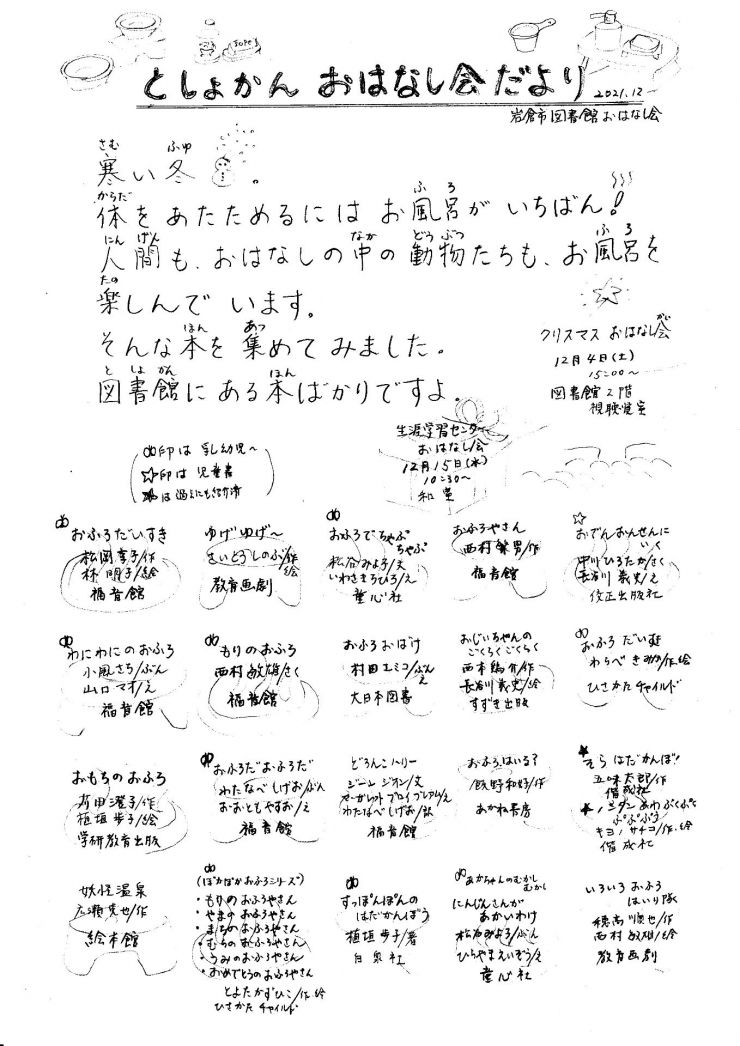 としょかん おはなし会だより 2021.12
岩倉市図書館おはなし会
寒い冬 。
体をあたためるにはお風呂がいちばん!
人間も、おはなしの中の動物たちも、お風呂を
楽しんでいます。
そんな本を集めてみました。
図書館にある本ばかりですよ。
クリスマス おはなし会
12月4日(土)
15:00~
図書館2階
視聴覚室
生涯学習センター
おはなし会
12月15日(水)
10:30~
和室
印は 乳幼児~
☆印は 児童書
おふろだいすき
松岡享子/作
林 明子/絵
福音館
ゆげゆげ~
さいとうしのぶ/作絵
教育画劇
おふろでちゃぷちゃぷ
松谷みよ子/文
いわさきちひろ/え
童心社
おふろやさん
西村繁男/作
福音館
☆
おでんおんせんにいく
中川ひろたか/さく
長谷川義史/え
佼正出版社
わにわにのおふろ
小風さち/ぶん
山口マオ/え
福音館
もりのおふろ
西村敏雄/さく
福音館
おふろおばけ
村田エミコ/ぶんえ
大日本図書
おじいちゃんの
ごくらくごくらく
西本鶏介/作
長谷川義史/絵
すずき出版
おふろだいすき
わらべきみか/作・絵
ひさかたチャイルド
おもちのおふろ
苅田澄子/作
植垣歩子/絵
学研教育出版
おふろだおふろだ
わたなべしげお/ぶん
おおともやすお/え
福音館
どろんこハリー
ジーン ジオン/文
マーガレット ブロイ グレアム/え
わたなべしげお/訳
福音館
おふろ、はいる?
飯野和好/作
あかね書房
★
そら はだかんぼ!
五味太郎/作
偕成社
★ノンタン あわぷくぷく
ぷぷぷう
キヨノ サチコ/作・絵
偕成社
妖怪温泉
広瀬克也/作
絵本館
(ぽかぽかおふろシリーズ)
・もりのおふろやさん
・やまのおふろやさん
・まちのおふろやさん
・むらのおふろやさん
・うみのおふろやさん
・おめでとうのおふろやさん
とよたかずひこ/作・絵
ひさかたチャイルド
すっぽんぽんの
はだかんぼう
植垣歩子/著
白泉社
あかちゃんのむかしむかし
にんじんさんが
あかいわけ
松谷みよ子/ぶん
ひらやまえいぞう/え
童心社
いろいろおふろ
はいり隊
穂高順也/作
西村敏雄/絵
教育画劇